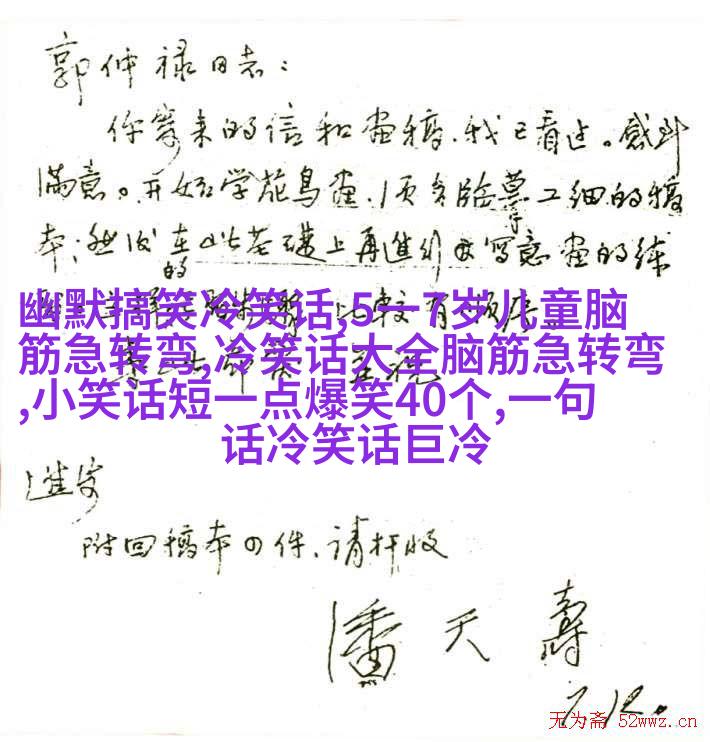 郭仲禄同志：
你寄来的信和画稿，我已看过。感到
满意。开始学花鸟画，须多临摹工细的稿
本；然后在此基础上再进行写意画的练
的
幽默搞笑冷笑话,5一7岁儿童脑
筋急转弯,冷笑话大全脑筋急转弯
,小笑话短一点爆笑40个,一句
话冷笑话巨冷
进安
附回稿本四件，请检收
潘天寿
7.12.
无为斋 52wwz.cn